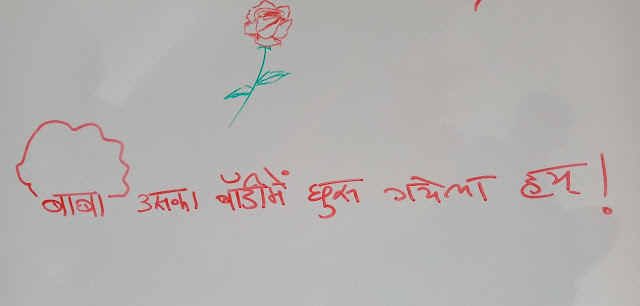 बाबा उसका बॉडीमें घुस गयेला हय!